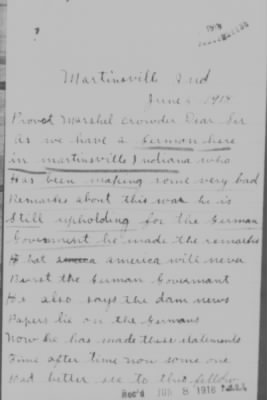 1918
Martinsville Ind
June 1918
Provost Marshel Crowder Dear Sir
As we have a German here
in martinsville Indiana who
Has been making some very bad
Remarks about this war he is
Still upholding for the German
Government he made the remarks
that america will never
Burst the German Government
He also says the dam news
Papers lie on the Germans
Now he has made these statements
Time after time now some one
Had better see to this fellow
Rec'd JUN 8 1918